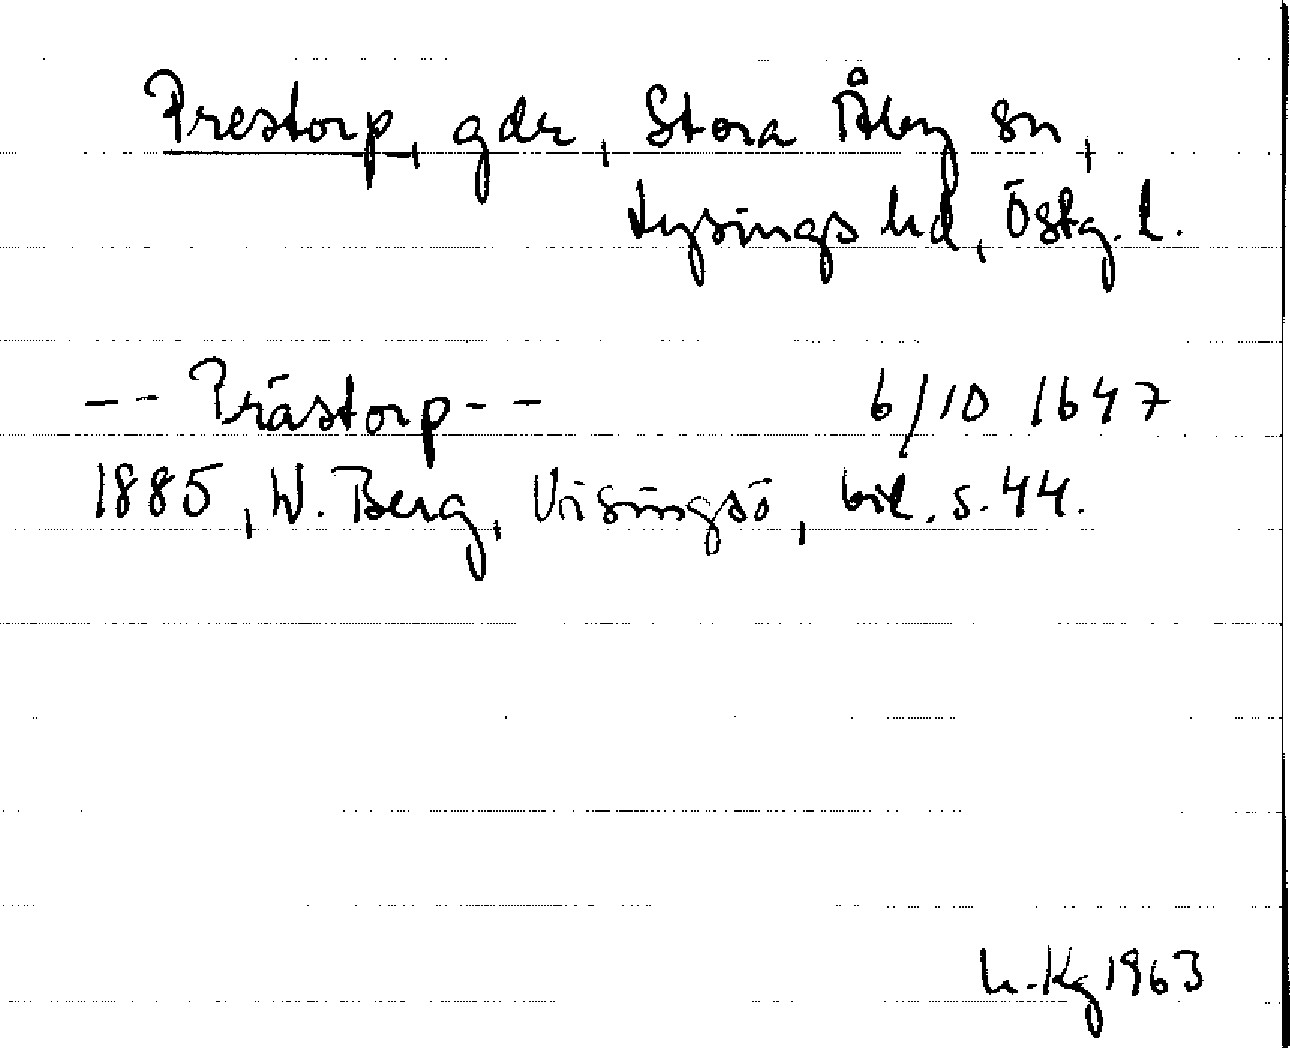 Prestorp, gdr, Stora Åby sn,
Lysings hd, Östg. l.
-- Prästorp-- 6/10 1647
1885, W. Berg, Visingsö, bil. s. 44.
h. Kg 1963